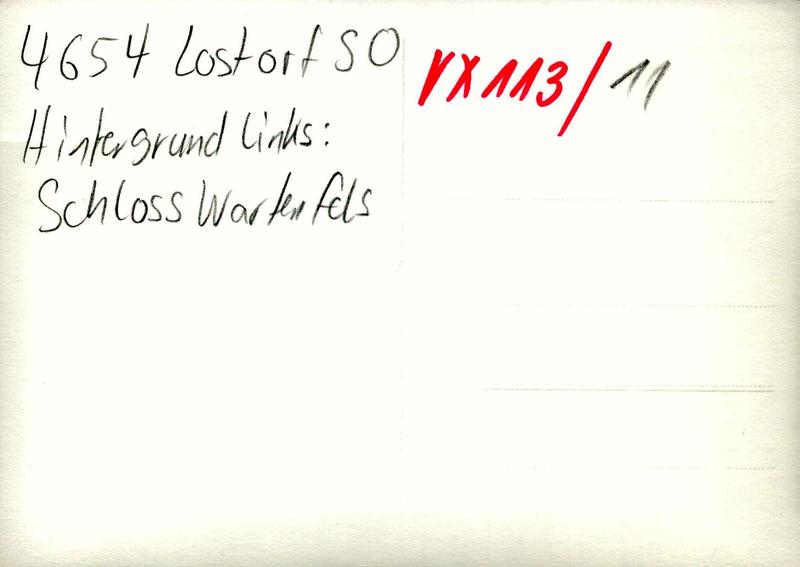 4654 Lostorf SO
Hintergrund links:
Schloss Wartenfels
VX113/11